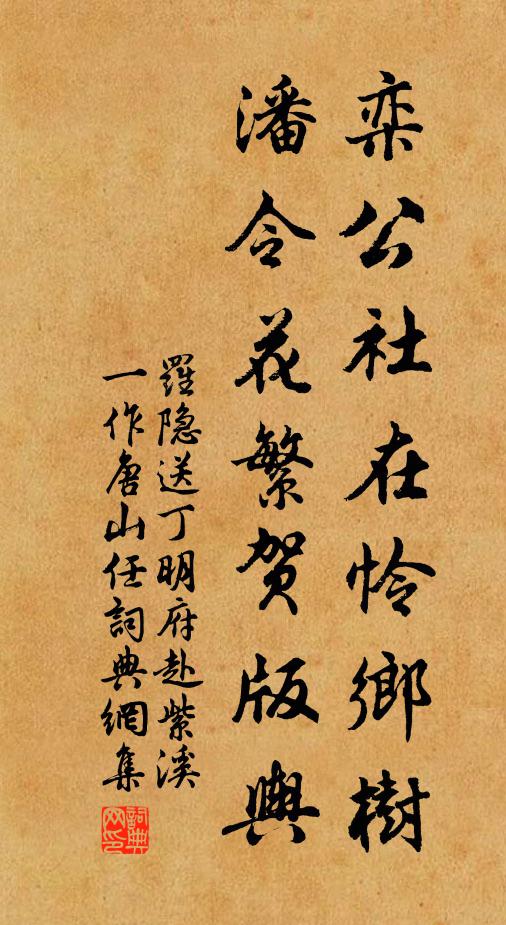 栾公社在怜鄉樹
潘令花繁贺版輿
羅隐送丁明府赴紫溪
一作唐山任詞典網集
詞典网印